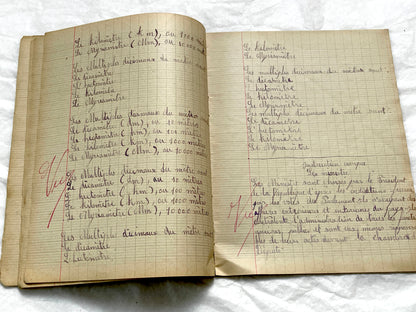 Le kilomètre (km), ou 1000 mètres
Le Myriamètre (Mm), ou 10.000
Les Multiples décimaux du mètre sont
Le décamètre
L'hectomètre
Le kilomètre
Le Myriamètre
Les Multiples décimaux du mètre sont
Le décamètre (dm), ou 10 mètres
L'hectomètre (hm), ou 100 mètres
Le kilomètre (km), ou 1000 mètres
Le Myriamètre (Mm), ou 10.000 mètres
Vu
Les Multiples décimaux du mètre sont
Le décamètre (dm), ou 10 mètres
L'hectomètre (hm), ou 100 mètres
Le kilomètre (Km), ou 1000 mètres
Le Myriamètre (Mm), 10.000 mètres
Les Multiples décimaux du mètre sont
Le décamètre
L'hectomètre
Le kilomètre
Le Myriamètre
Les multiples décimaux du mètre sont
Le décamètre
L'hectomètre
Le kilomètre
Le Myriamètre
Les multiples décimaux du mètre sont
Le décamètre
L'hectomètre
Le kilomètre
Le Myriamètre
Instruction civique
Les ministres
Vu
Les Ministres sont chargés par le Président
de la République
des votes du Parlement
extérieures et intérieures du pays
l'administration de tous les
publics
de leurs actes devant la chambre des
députés